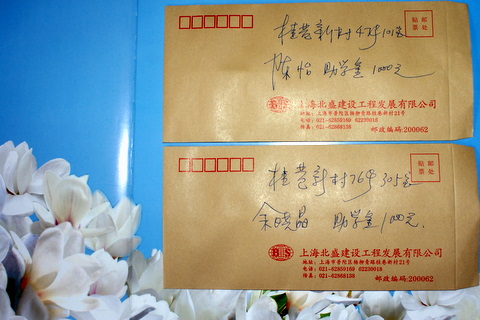 贴邮
票处
桂巷新村47号101室
陈怡 助学金1000元
BS
上海北盛建设工程发展有限公司
地址：上海市普陀区杨柳青路桂巷新村21号
电话：021-62859160 62230018
传真：021-62868138
邮政编码:200062
贴邮
票处
桂巷新村76号305室
余晓晶 助学金1000元.
BS
上海北盛建设工程发展有限公司
地址：上海市普陀区杨柳青路桂巷新村21号
电话：021-62859160 62230018
传真：021-62868138
邮政编码:200062